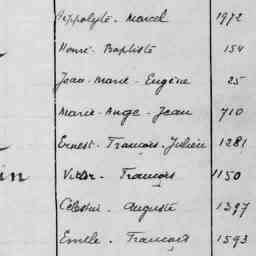 Hippolyte - Marcel 1972
Henri - Baptiste 154
Jean - Marie - Eugène 25
Marie - Ange - Jean 710
Ernest - François - Julien 1281
in Victor - François 1150
Célestin - Auguste 1397
Emile - François 1593